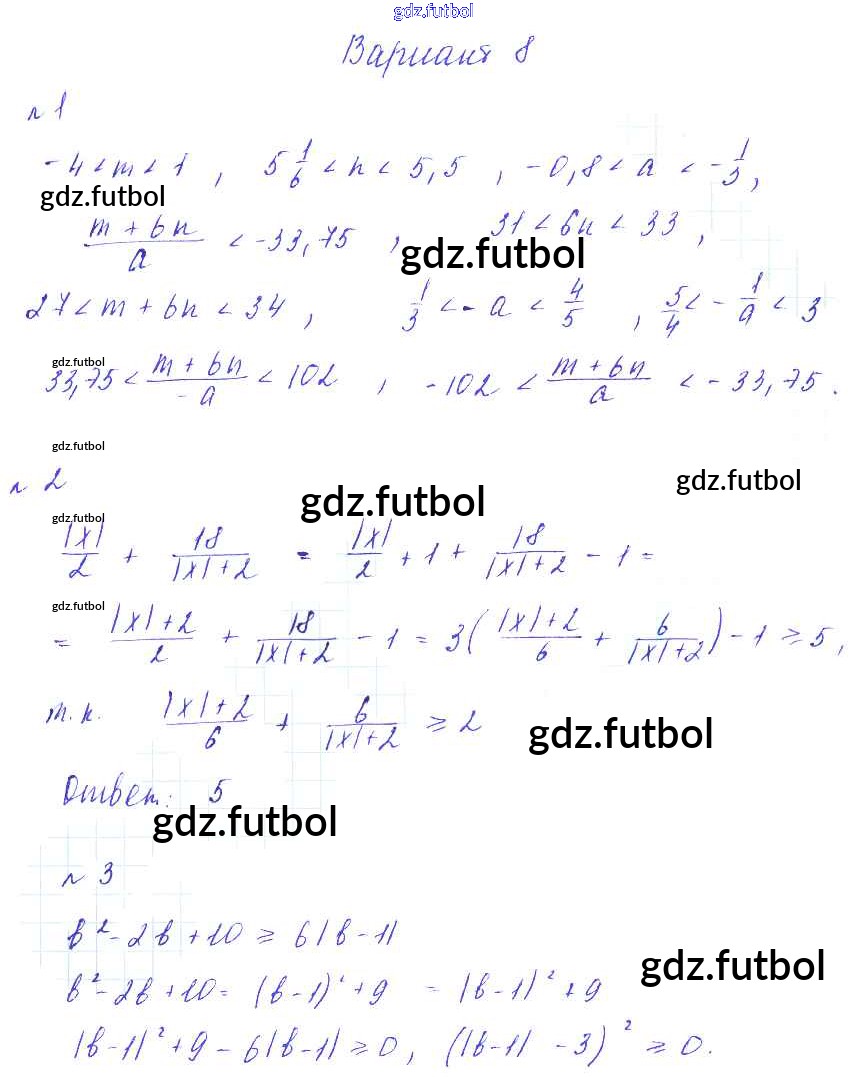 gdz.futbol
Вариант 8
№ 1
-4 < m < 1 , 5 1/6 < n < 5,5 , -0,8 < a < -1/3 ,
gdz.futbol
(m + 6n)/a < -33,75 , 31 < 6n < 33 ,
gdz.futbol
27 < m + 6n < 34 , 1/3 < -a < 4/5 , 5/4 < -1/a < 3
gdz.futbol
33,75 < (m + 6n)/(-a) < 102 , -102 < (m + 6n)/a < -33,75 .
gdz.futbol
№ 2
gdz.futbol
gdz.futbol
gdz.futbol
|x|/2 + 18/(|x|+2) = |x|/2 + 1 + 18/(|x|+2) - 1 =
gdz.futbol
= (|x|+2)/2 + 18/(|x|+2) - 1 = 3((|x|+2)/6 + 6/(|x|+2)) - 1 ≥ 5 ,
т.к. (|x|+2)/6 + 6/(|x|+2) ≥ 2
gdz.futbol
Ответ: 5
gdz.futbol
№ 3
b² - 2b + 10 ≥ 6|b - 1|
gdz.futbol
b² - 2b + 10 = (b - 1)² + 9 = |b - 1|² + 9
|b - 1|² + 9 - 6|b - 1| ≥ 0 , (|b - 1| - 3)² ≥ 0.